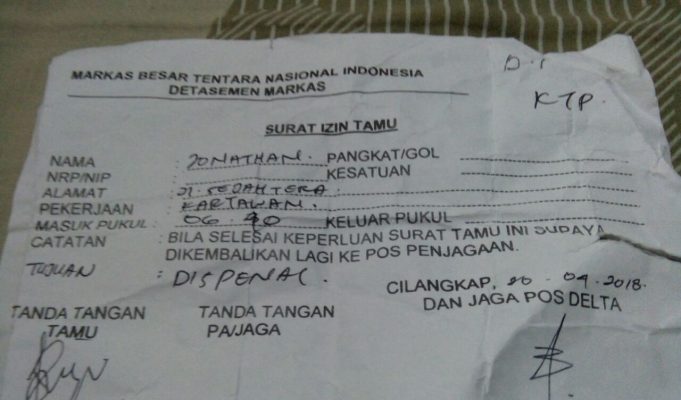 MARKAS BESAR TENTARA NASIONAL INDONESIA
DETASEMEN MARKAS
KTP.
SURAT IZIN TAMU
NAMA : JONATHAN. PANGKAT/GOL
NRP/NIP : KESATUAN
ALAMAT : JL. SEJAHTERA.
PEKERJAAN : KARYAWAN.
MASUK PUKUL : 06. KELUAR PUKUL
CATATAN : BILA SELESAI KEPERLUAN SURAT TAMU INI SUPAYA
DIKEMBALIKAN LAGI KE POS PENJAGAAN.
TUJUAN : DISPENAL.
CILANGKAP, 20 - 04 - 2018.
DAN JAGA POS DELTA
TANDA TANGAN TANDA TANGAN
TAMU PA/JAGA